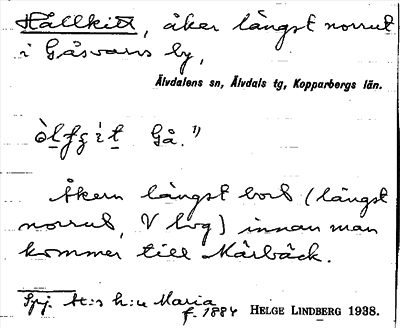 Hållkitt, åker längst norrut
i Gåsvarvs by,
Älvdalens sn, Älvdals tg, Kopparbergs län.
Gå. 1)
Åkern längst bort (längst
norrut, V lvg) innan man
kommer till Kårbäck.
Spj. At:s h:u Maria
f. 1884 HELGE LINDBERG 1938.